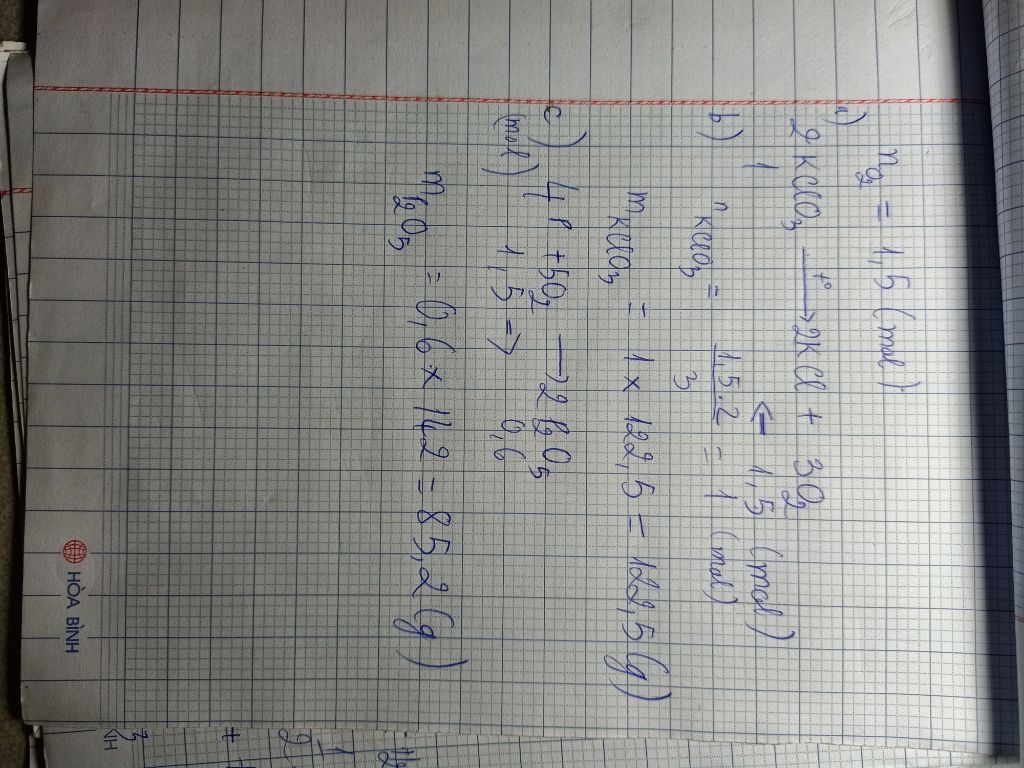 n O₂ = 1,5 (mol)
a)
2 KClO₃ —t°→ 2KCl + 3O₂
1 ← 1,5 (mol)
b) n KClO₃ = 1,5.2 / 3 = 1 (mol)
m KClO₃ = 1 x 122,5 = 122,5 (g)
c) 4P + 5O₂ → 2 P₂O₅
(mol) 1,5 => 0,6
m P₂O₅ = 0,6 x 142 = 85,2 (g)
HÒA BÌNH